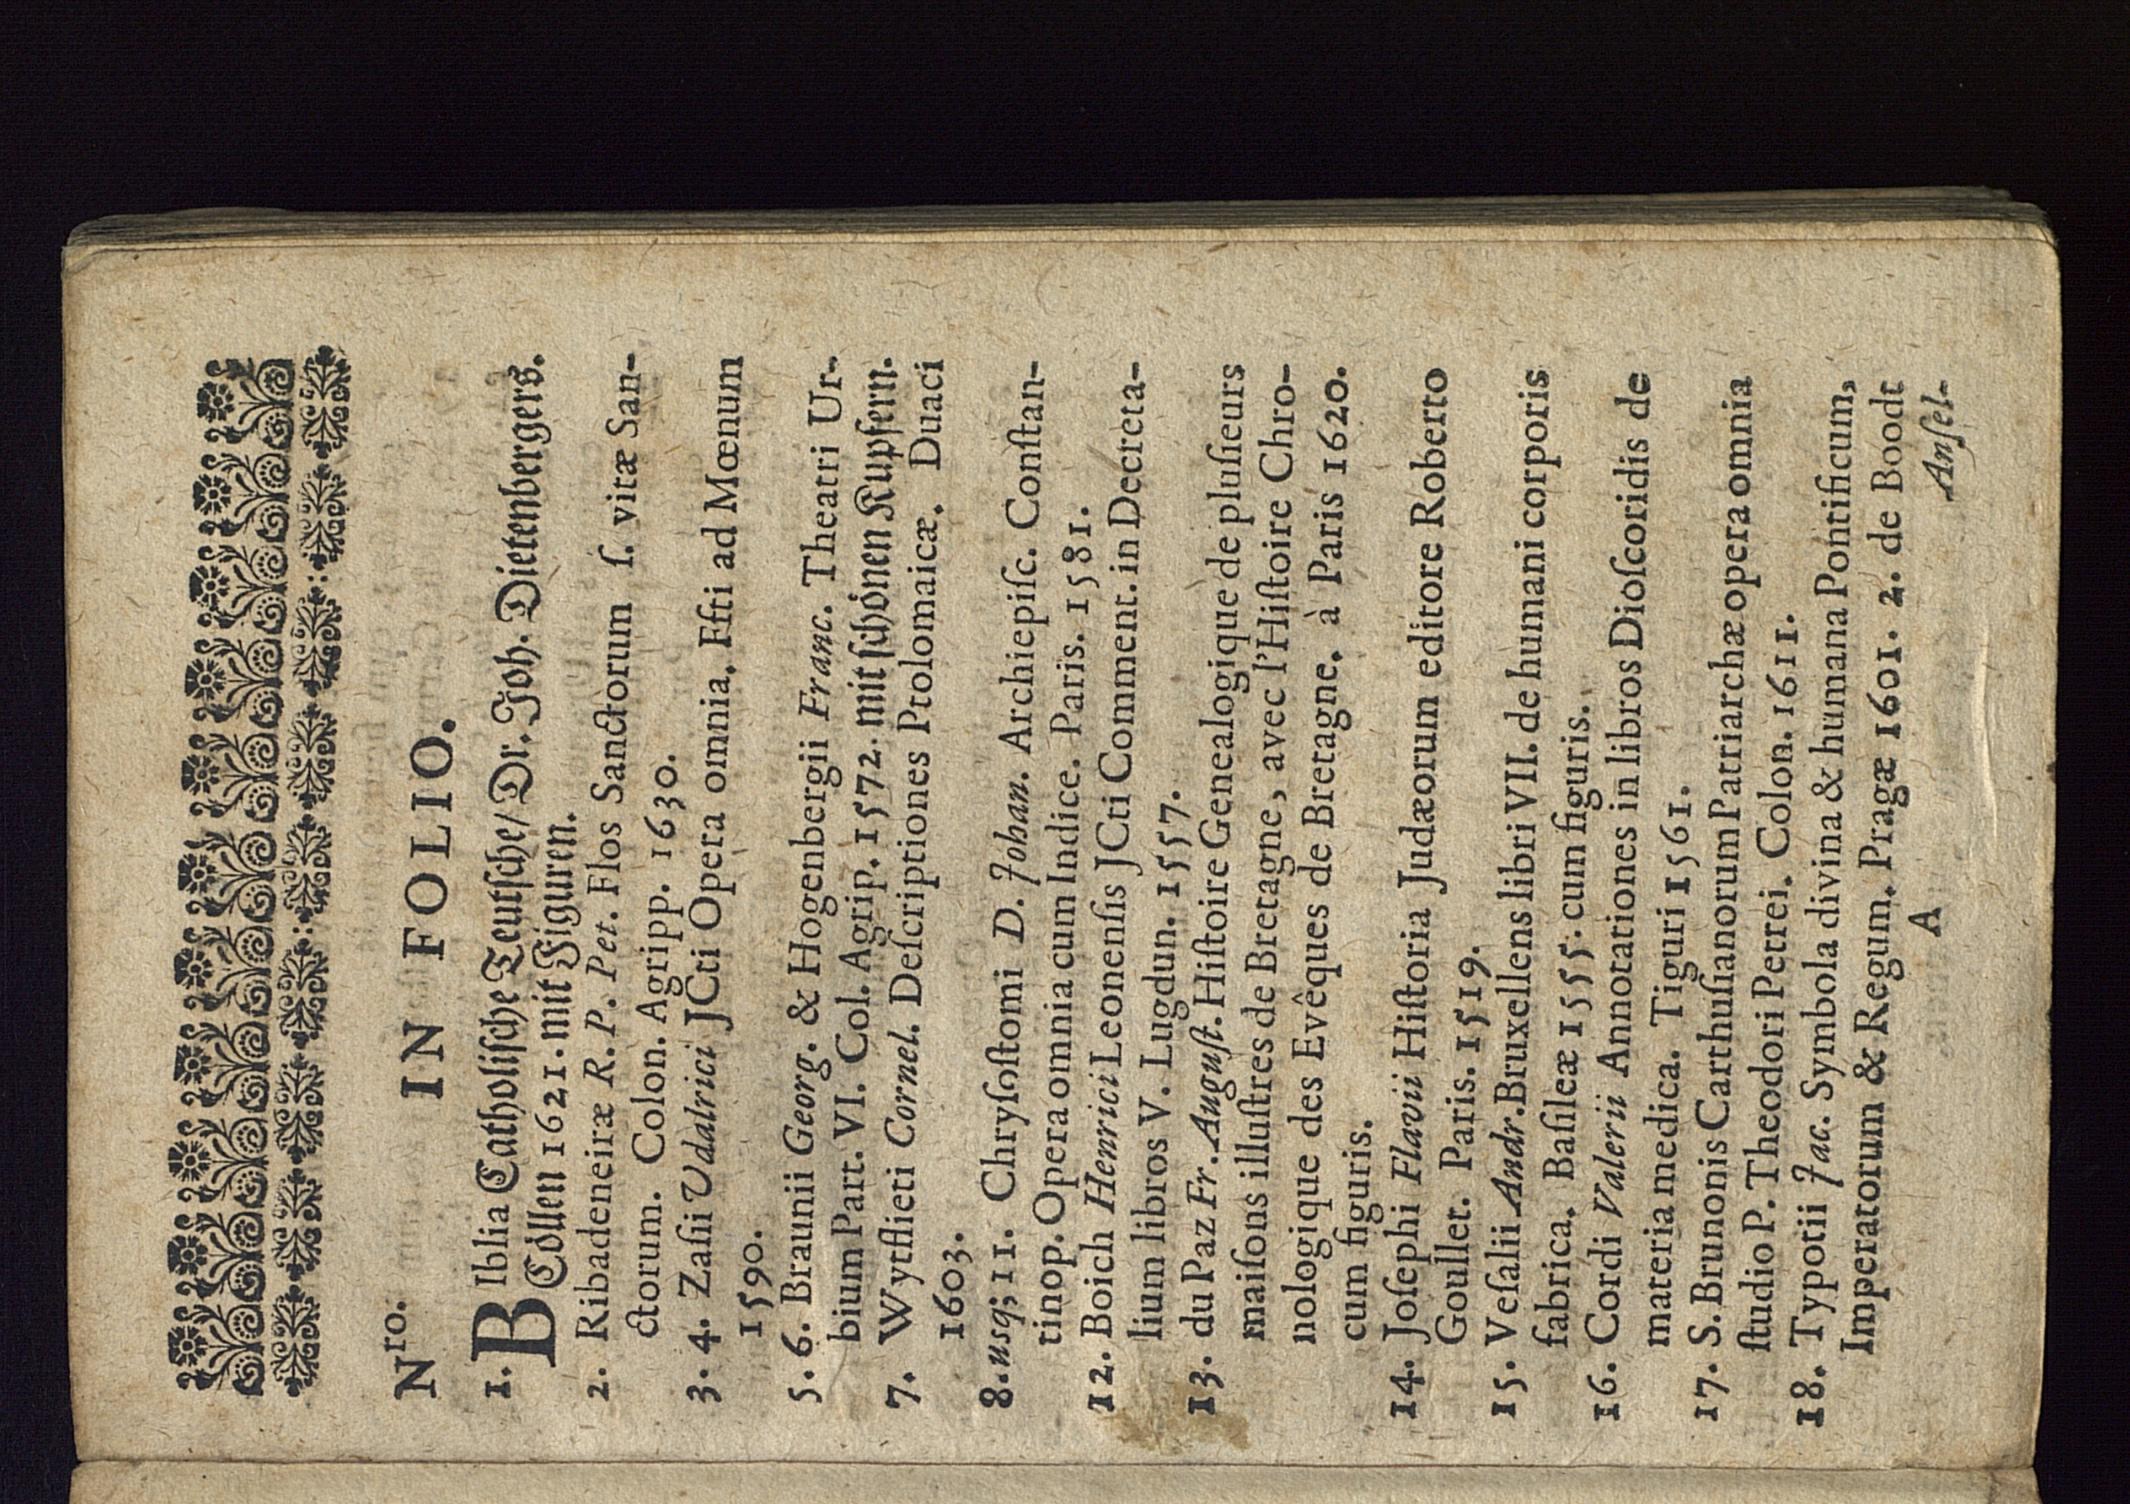 Nro.
IN FOLIO.
1. BIblia Catholiſche Teutſche/ Dr. Joh. Dietenbergers.
Cöllen 1621. mit Figuren.
2. Ribadeneiræ R. P. Pet. Flos Sanctorum ſ. vitæ San-
ctorum. Colon. Agripp. 1630.
3. 4. Zaſii Udalrici JCti Opera omnia. Ffti ad Mœnum
1590.
5. 6. Braunii Georg. & Hogenbergii Franc. Theatri Ur-
bium Part. VI. Col. Agrip. 1572. mit ſchönen Kupfern.
7. Wytflieti Cornel. Deſcriptiones Ptolomaicæ. Duaci
1603.
8. usq; 11. Chryſoſtomi D. Johan. Archiepiſc. Conſtan-
tinop. Opera omnia cum Indice. Paris. 1581.
12. Boich Henrici Leonenſis JCti Comment. in Decreta-
lium libros V. Lugdun. 1557.
13. du Paz Fr. Auguſt. Hiſtoire Genealogique de pluſieurs
maiſons illuſtres de Bretagne, avec l'Hiſtoire Chro-
nologique des Evêques de Bretagne. à Paris 1620.
cum figuris.
14. Joſephi Flavii Hiſtoria Judæorum editore Roberto
Goullet. Paris. 1519.
15. Veſalii Andr. Bruxellens libri VII. de humani corporis
fabrica. Baſileæ 1555. cum figuris.
16. Cordi Valerii Annotationes in libros Dioſcoridis de
materia medica. Tiguri 1561.
17. S. Brunonis Carthuſianorum Patriarchæ opera omnia
ſtudio P. Theodori Petrei. Colon. 1611.
18. Typotii Jac. Symbola divina & humana Pontificum,
Imperatorum & Regum. Pragæ 1601. 2. de Boodt
A
Anſel-